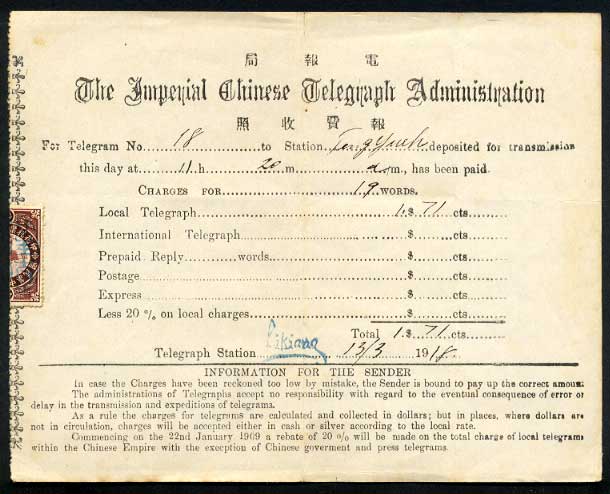 局 報 電
The Imperial Chinese Telegraph Administration
照 收 費 報
For Telegram No. 18 to Station, Tengyueh deposited for transmission
this day at 11 h. 20 m. a.m., has been paid.
CHARGES FOR 19 WORDS.
Local Telegraph 1.$ 71 cts.
International Telegraph $ cts.
Prepaid Reply words $ cts.
Postage $ cts.
Express $ cts.
Less 20 % on local charges $ cts.
Total 1 $ 71 cts.
Telegraph Station Likiang 13/3 1918.
INFORMATION FOR THE SENDER
In case the Charges have been reckoned too low by mistake, the Sender is bound to pay up the correct amount.
The administrations of Telegraphs accept no responsibility with regard to the eventual consequence of error or
delay in the transmission and expeditions of telegrams.
As a rule the charges for telegrams are calculated and collected in dollars; but in places, where dollars are
not in circulation, charges will be accepted either in cash or silver according to the local rate.
Commencing on the 22nd January 1909 a rebate of 20 % will be made on the total charge of local telegrams
within the Chinese Empire with the exection of Chinese goverment and press telegrams.